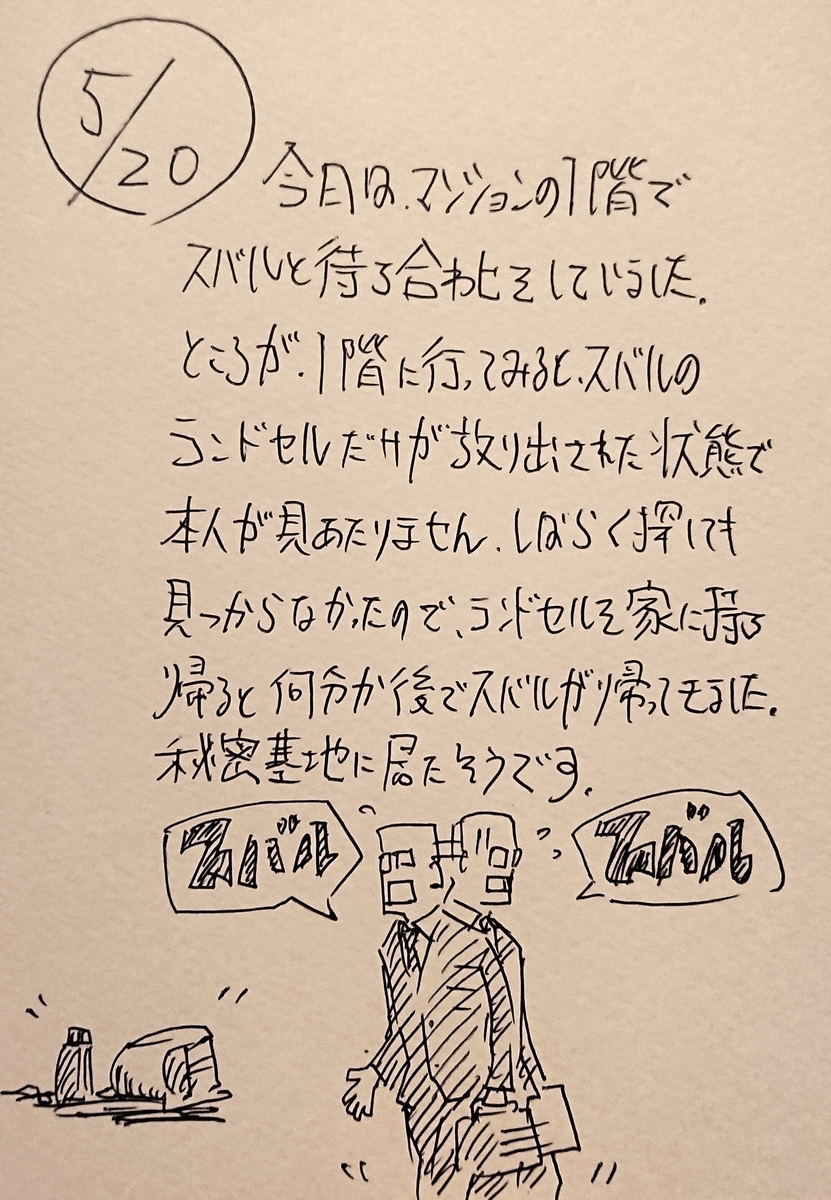 5/20
今日は、マンションの1階で
スバルと待ち合わせをしていました。
ところが、1階に行ってみると、スバルの
ランドセルだけが放り出された状態で
本人が見あたりません。しばらく探しても
見つからなかったので、ランドセルを家に持ち
帰ると何分か後でスバルが帰ってきました。
秘密基地に居たそうです。
スバル
スバル